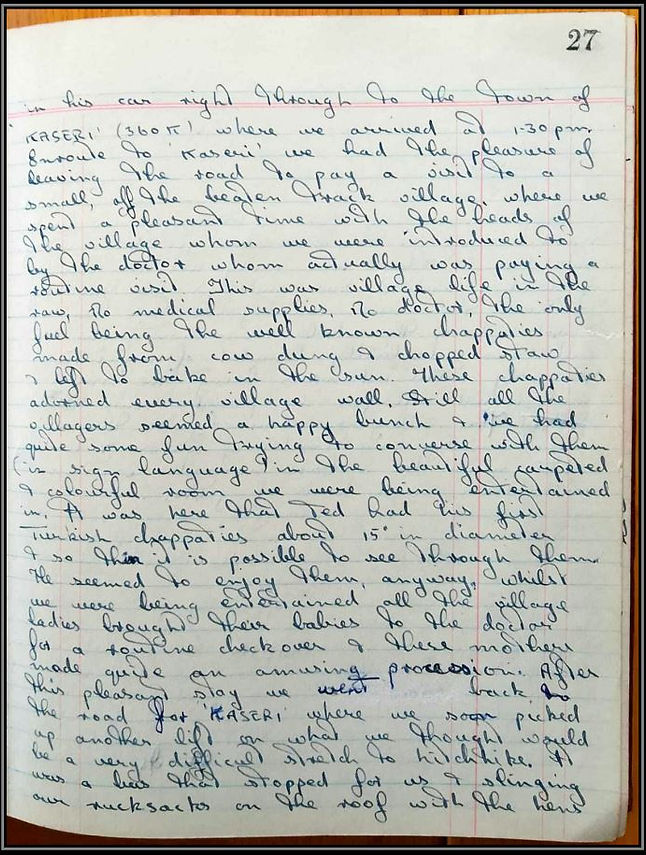 27
in his car right through to the town of
'KASERI' (360 K) where we arrived at 1-30 pm.
Enroute to 'Kaseri' we had the pleasure of
leaving the road to pay a visit to a
small, off the beaten track village, where we
spent a pleasant time with the heads of
the village whom we were introduced to
by the doctor whom actually was paying a
routine visit. This was village life in the
raw, No medical supplies, No doctor, the only
fuel being the well known chappaties
made from cow dung & chopped straw
& left to bake in the sun. These chappaties
adorned every village wall. Still all the
villagers seemed a happy bunch & we had
quite some fun trying to converse with them
(in sign language) in the beautiful carpeted
& colourful room we were being entertained
in. It was here that Ted had his first
Turkish chappaties about 15" in diameter
& so thin it is possible to see through them.
He seemed to enjoy them, anyway, whilst
we were being entertained all the village
ladies brought their babies to the doctor
for a routine checkover & these mothers
made quite an amusing procession. After
this pleasant stay we went back to
the road for 'KASERI' where we soon picked
up another lift on what we thought would
be a very difficult stretch to hitchhike. It
was a bus that stopped for us & slinging
our rucksacks on the roof with the hens